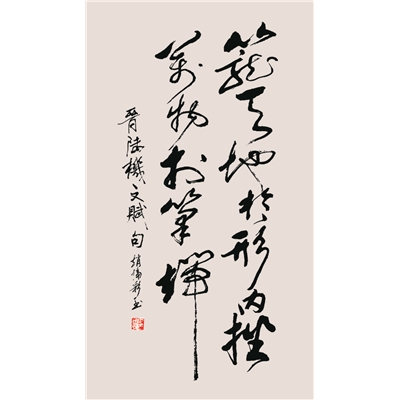 籠天地於形內挫
萬物於筆端
晉陸機文賦句